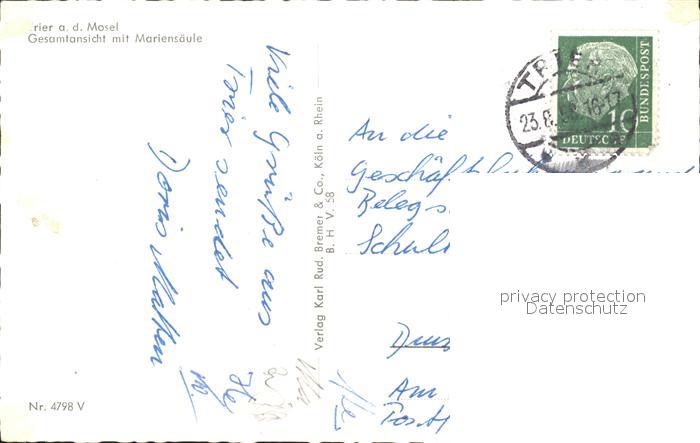 rier a. d. Mosel
Gesamtansicht mit Mariensäule
Viele Grüße aus
Trier sendet
Doris
Verlag Karl Rud. Bremer & Co., Köln a. Rhein
B. H. V. 58
Nr. 4798 V
TRIER
23.8.
16-17
10
DEUTSCHE
BUNDESPOST
An die
Geschäf
Belegs
Schul
Am
Postf
privacy protection
Datenschutz